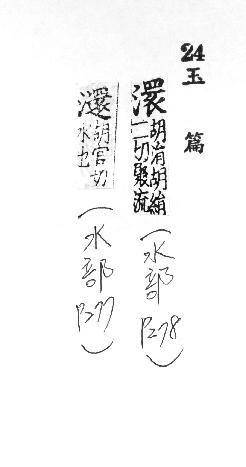 24
玉篇
澴
胡胡絹
二切聚流
(水部P278)
胡官切
水也
(水部P277)